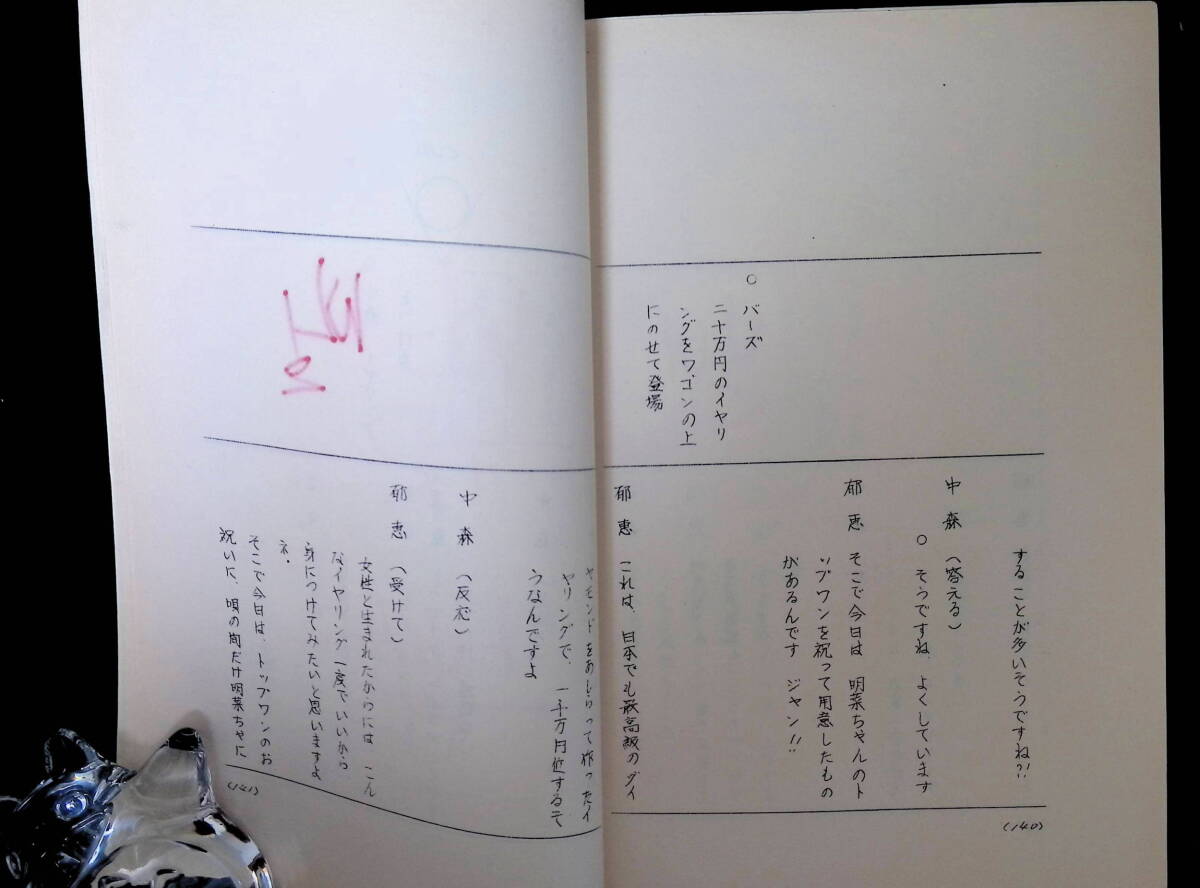 ○ バーズ
一千万円のイヤリ
ングをワゴンの上
にのせて登場
することが多いそうですね?!
中森 (答える)
○ そうですね、よくしています
郁恵 そこで今日は 明菜ちゃんのト
ップワンを祝って用意したもの
があるんです ジャン!!
郁恵 これは、日本でも最高級のダイ
(140)
ヤモンドをあしらって作ったイ
ヤリングで、一千万円位するそ
うなんですよ
中森 (反応)
郁恵 (受けて)
女性と生まれたからには こん
なイヤリング一度でいいから
身につけてみたいと思いますよ
ネ。
そこで今日は、トップワンのお
祝いに、唄の間だけ明菜ちゃに
(141)